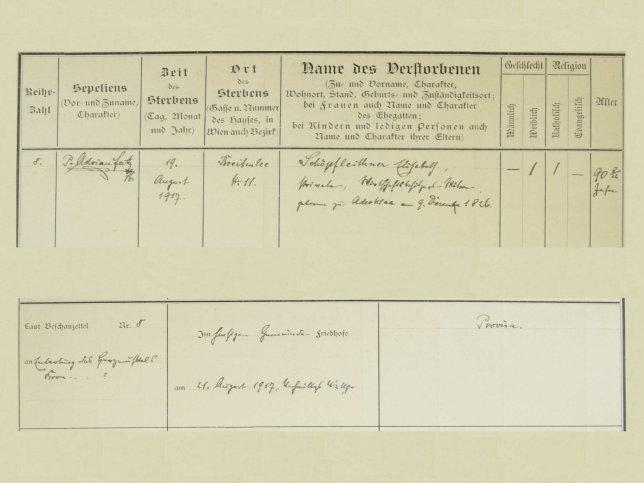 Reihe-
Zahl
Sepeliens
(Vor- und Zuname,
Charakter)
Zeit
des
Sterbens
(Tag, Monat
und Jahr)
Ort
des
Sterbens
(Gasse u. Nummer
des Hauses, in
Wien auch Bezirk)
Name des Verstorbenen
(Zu- und Vorname, Charakter,
Wohnort, Stand, Geburts- und Zuständigkeitsort;
bei Frauen auch Name und Charakter
des Ehegatten;
bei Kindern und ledigen Personen auch
Name und Charakter ihrer Eltern)
Geschlecht
Männlich
Weiblich
Religion
Katholisch
Evangelisch
Alter
8.
P. Adrian
19.
August
1917.
Breitenlee
N: 11.
Schüpfleithner Elisabeth,
Private,
geboren zu Aderklaa am 9. Dezember 1826.
— 1 1 —
90
Jahre
Laut Beschauzettel Nr. 8
an Entartung des Herzmuskels
Im hiesigen Gemeinde Friedhofe
am 21. August 1917,
Provisa.